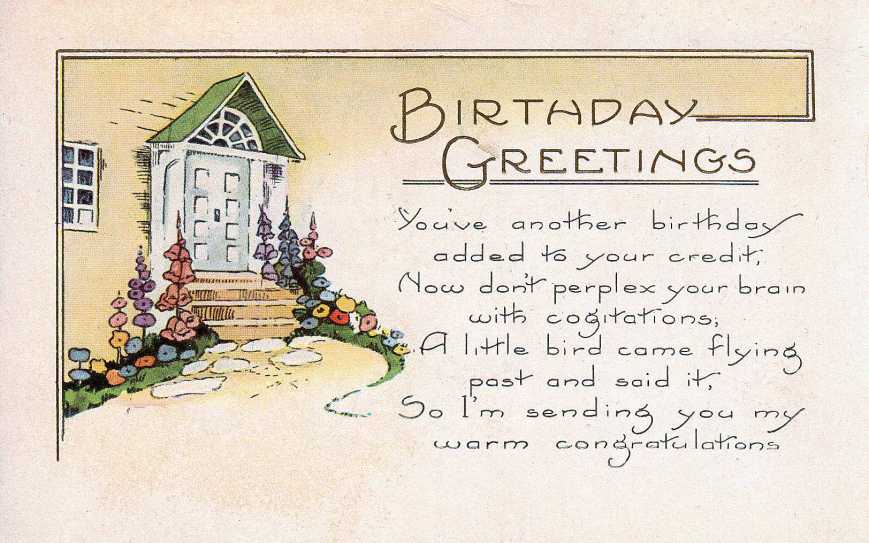 BIRTHDAY
GREETINGS
You've another birthday
added to your credit,
Now don't perplex your brain
with cogitations;
A little bird came flying
past and said it,
So I'm sending you my
warm congratulations